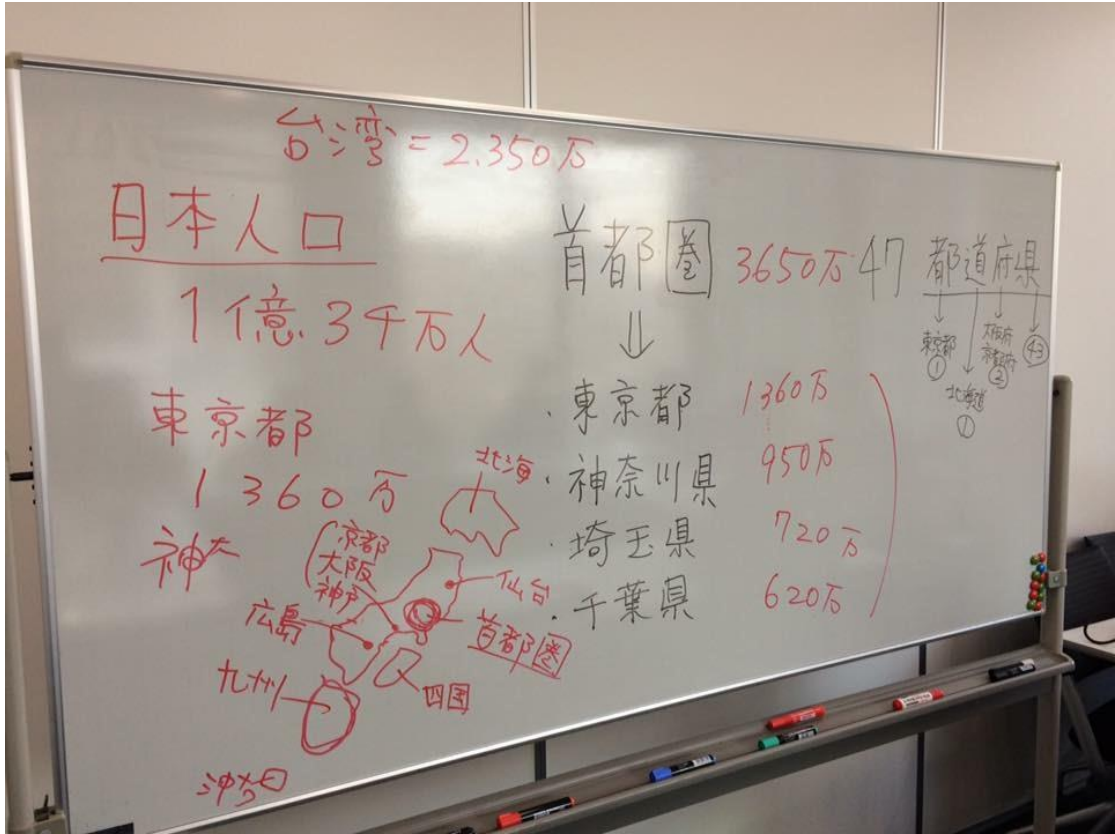 台湾=2.350万
日本人口
1億.34万人
東京都
1360万
神大
京都
大阪
神戸
広島
九州
四国
首都圏
仙台
北海
首都圏 3650万
・東京都 1360万
・神奈川県 950万
・埼玉県 720万
・千葉県 620万
47都道府県
東京都
①
北海道
①
大阪府
京都府
②
㊸